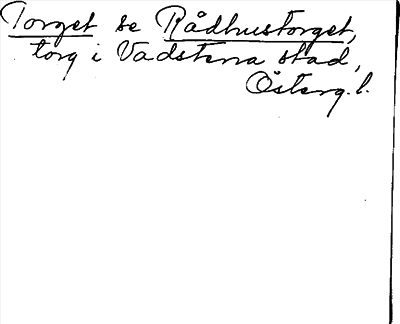 Torget se Rådhustorget,
torg i Vadstena stad,
Österg. l.